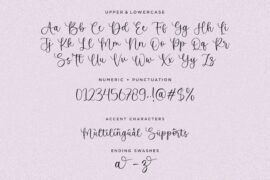 UPPER & LOWERCASE
Aa Bb Cc Dd Ee Ff Gg Hh Ii
Jj Kk Ll Mm Nn Oo Pp Qq Rr
Ss Tt Uu Vv Ww Xx Yy Zz
NUMERIC + PUNCTUATION
0123456789.,!@#$%
ACCENT CHARACTERS
Mültilìngúál Süppörts
ENDING SWASHES
a - z